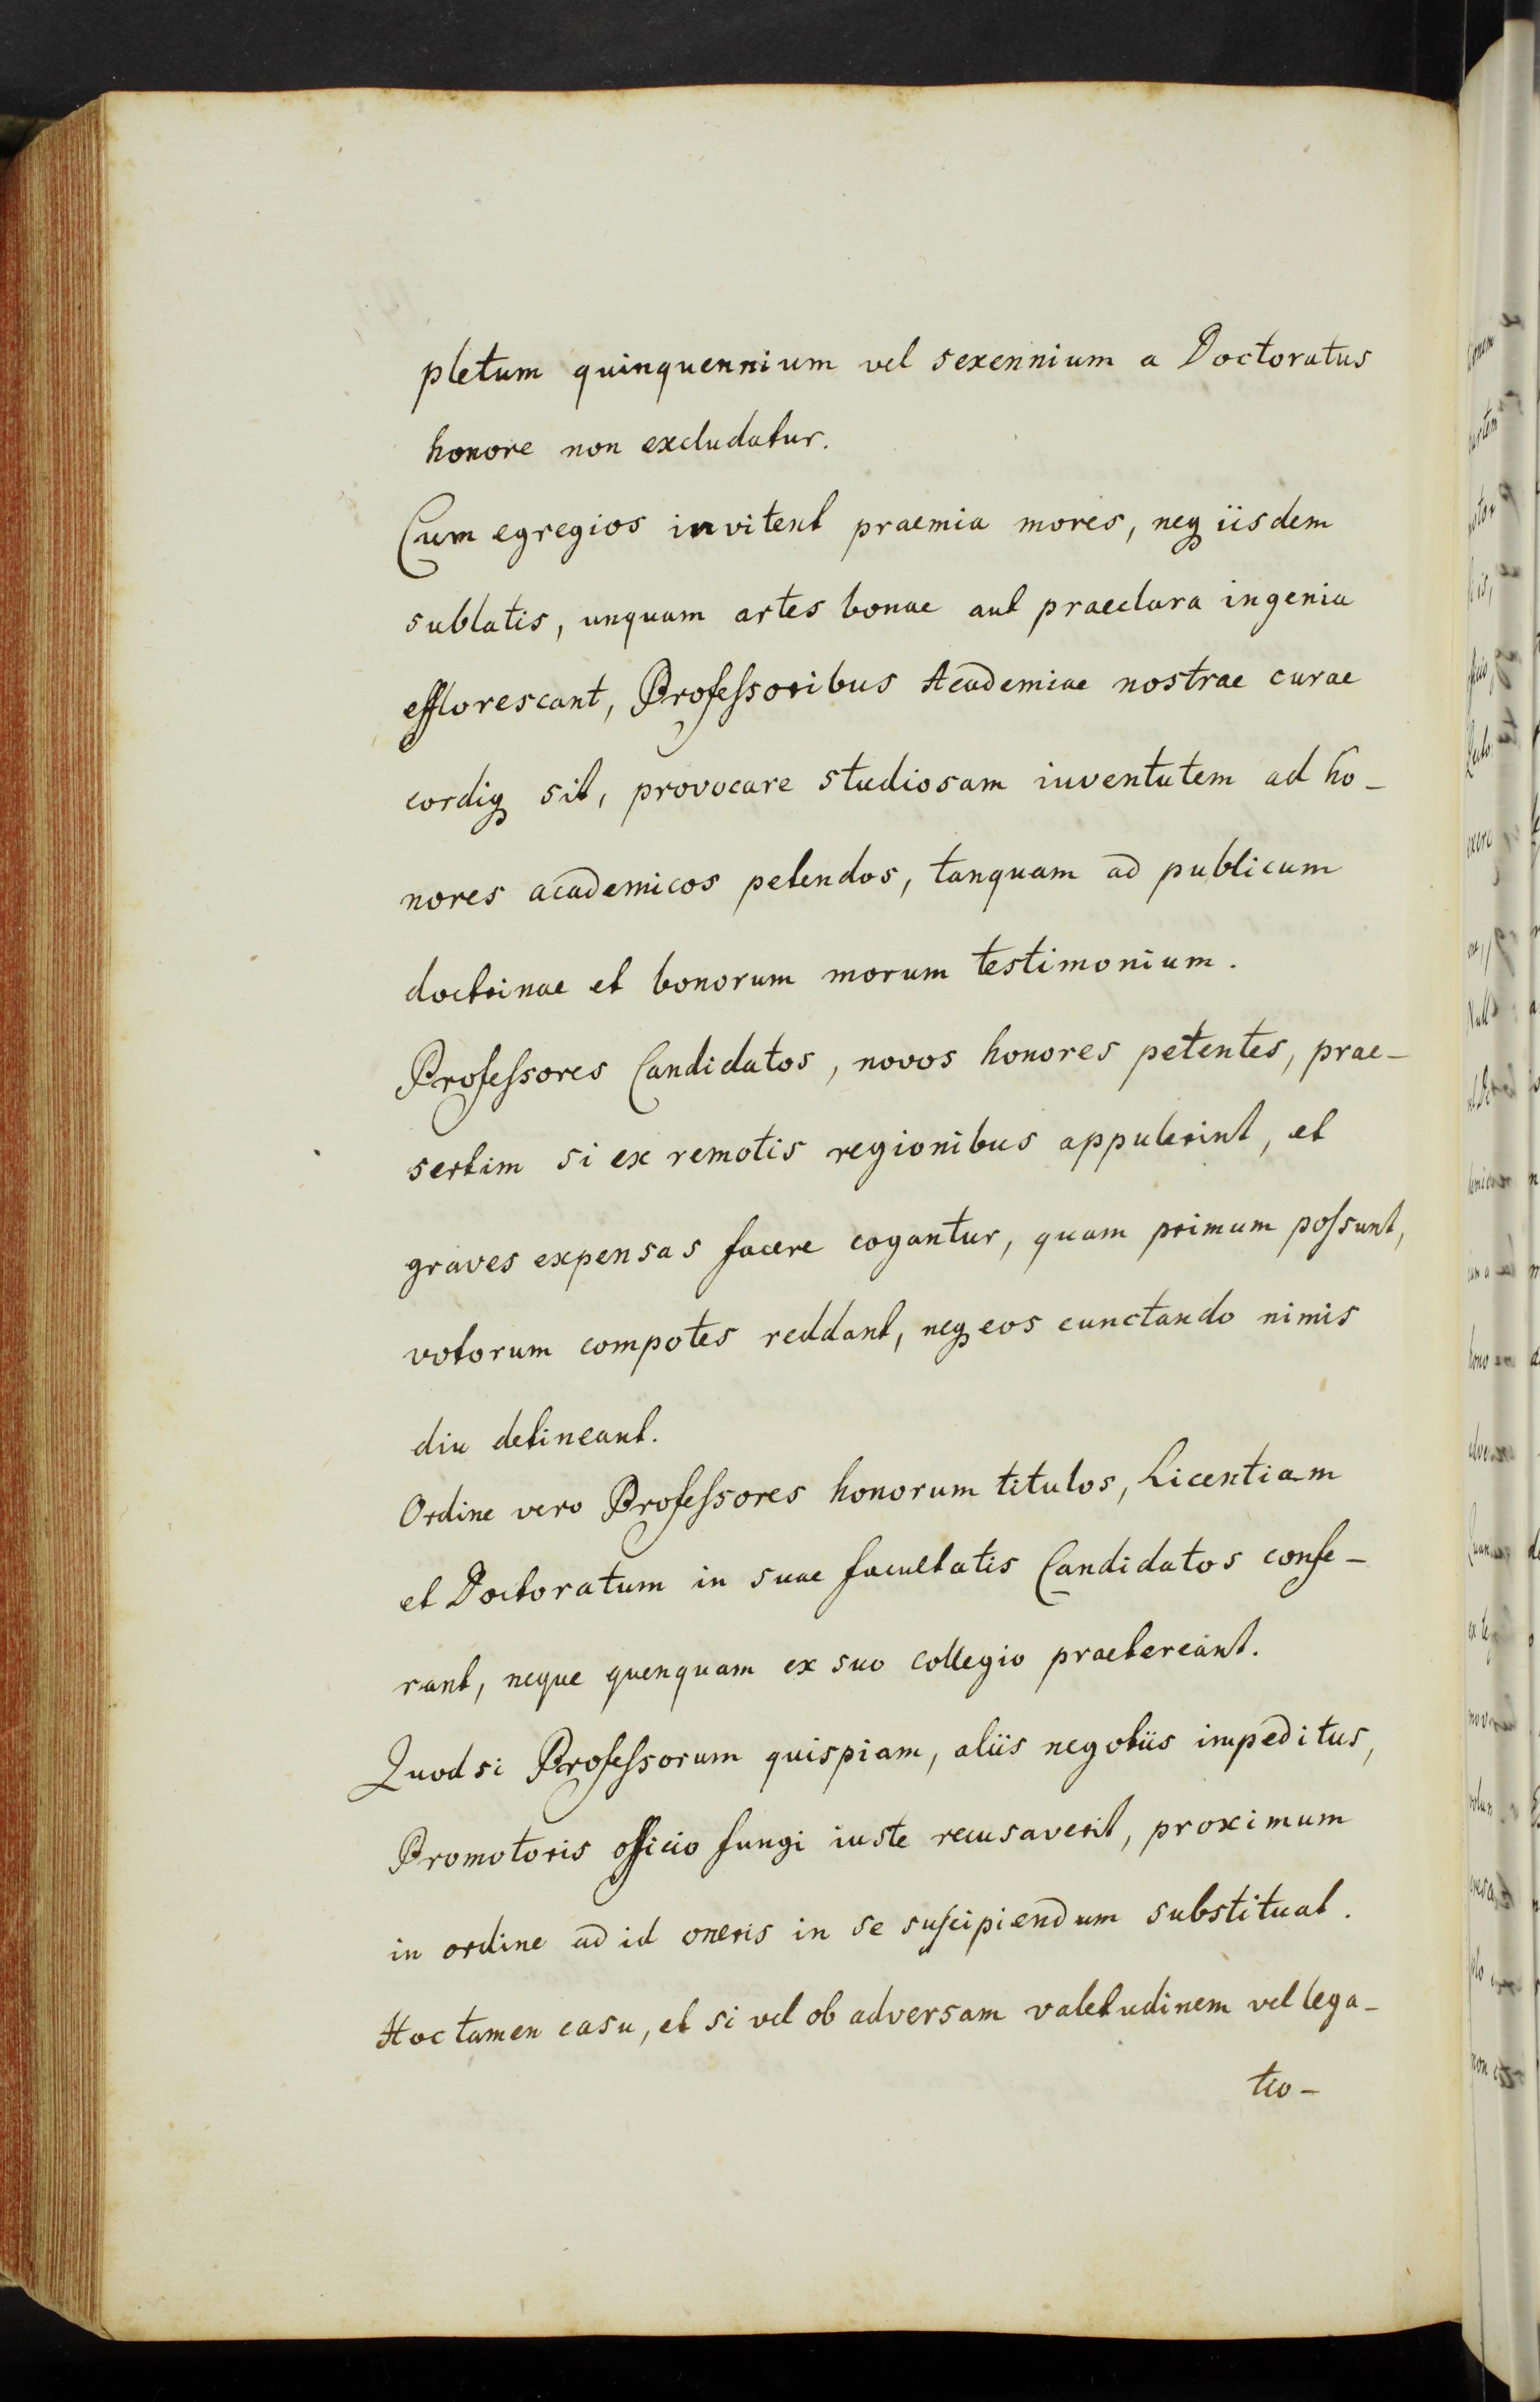 pletum quinquennium vel sexennium a Doctoratus
honore non excludatur.
Cum egregios invitent praemia mores, neq iisdem
sublatis, unquam artes bonae aut praeclara ingenia
efflorescant, Profeſsoribus Academiae nostrae curae
cordiq sit, provocare studiosam iuventutem ad ho-
nores academicos petendos, tanquam ad publicum
doctrinae et bonorum morum testimonium.
Profeſsores Candidatos, novos honores petentes, prae-
sertim si ex remotis regionibus appulerint, et
graves expensas facere cogantur, quam primum poſsunt,
votorum compotes reddant, neq eos cunctando nimis
diu detineant.
Ordine vero Profeſsores honorum titulos, Licentiam
et Doctoratum in suae facultatis Candidatos confe-
rant, neque quenquam ex suo collegio praetereant.
Quodsi Profeſsorum quispiam, aliis negotiis impeditus,
Promotoris officio fungi iuste recusaverit, proximum
in ordine ad id oneris in se suſcipiendum substituat.
Hoc tamen casu, et si vel ob adversam valetudinem vel lega-
tio-